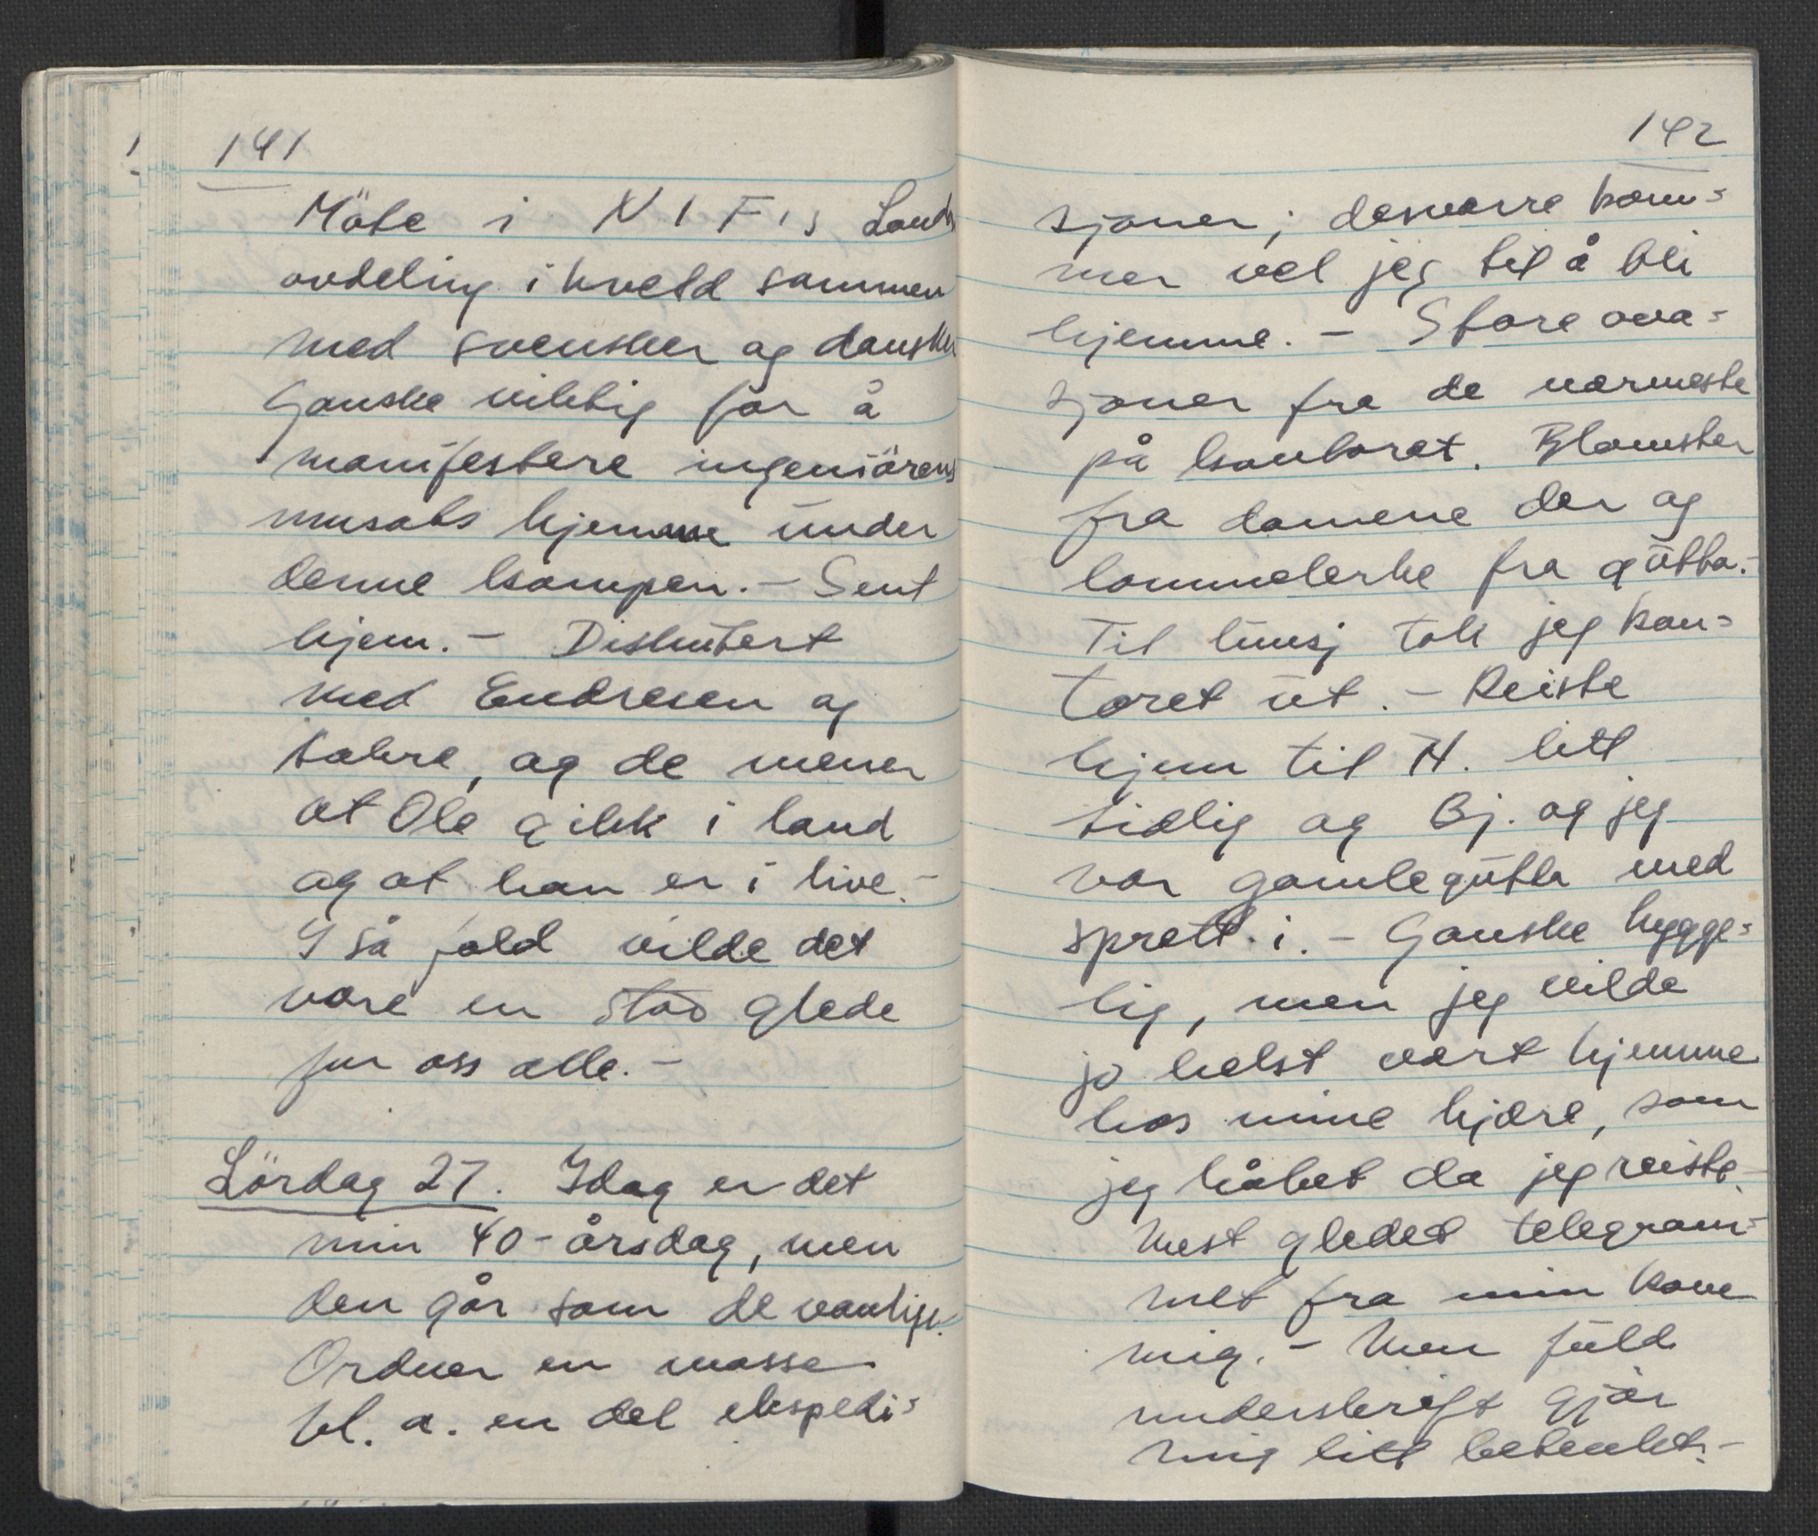 141
Möte i NIF's Lands
avdeling ikveld sammen
med svensker og dansker
Ganske viktig for å
manifestere ingeniörens
innsats hjemme under
denne kampen. - Sent
hjem. - Diskutert
med Endresen og
andre, og de mener
at Ole gikk i land
og at han er i live. -
I så fald vilde det
være en stor glede
for oss alle. -
Lördag 27. Idag er det
min 40-årsdag, men
den går som de vanlige.
Ordner en masse
bl. a. en del ekspedi=
142
sjoner; desværre kom=
mer vel jeg til å bli
hjemme. - Store ova=
sjoner fra de nærmeste
på kontoret. Blomster
fra damene der og
lommelerke fra gutta. -
Til lunsj tok jeg kon=
toret ut. - Reiste
hjem til H. litt
tidlig og Bj. og jeg
var gamlegutta med
sprett i. - Ganske hygge=
lig, men jeg vilde
jo helst vært hjemme
hos mine kjære, som
jeg håbet da jeg reiste.
Mest gledet telegram=
met fra min kone
mig. - Men fuld
underskrift gjör
mig litt betenkt. -